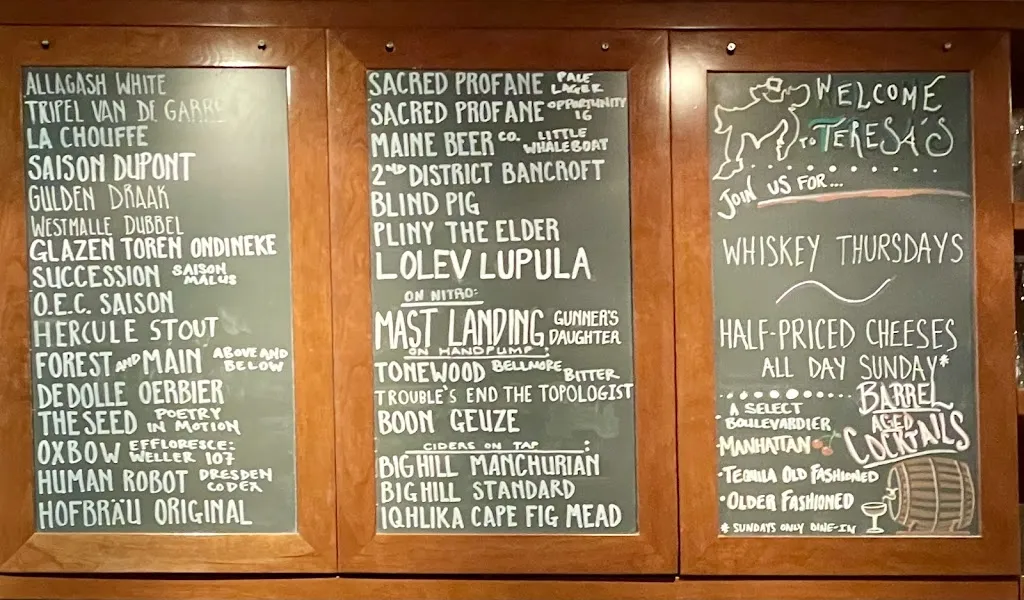 ALLAGASH WHITE
TRIPEL VAN DE GARRE
LA CHOUFFE
SAISON DUPONT
GULDEN DRAAK
WESTMALLE DUBBEL
GLAZEN TOREN ONDINEKE
SUCCESSION SAISON MALUS
O.E.C. SAISON
HERCULE STOUT
FOREST AND MAIN ABOVE AND BELOW
DE DOLLE OERBIER
THE SEED POETRY IN MOTION
OXBOW EFFLORESCE: WELLER 107
HUMAN ROBOT DRESDEN CODER
HOFBRÄU ORIGINAL
SACRED PROFANE PALE LAGER
SACRED PROFANE OPPORTUNITY 16
MAINE BEER CO. LITTLE WHALEBOAT
2ND DISTRICT BANCROFT
BLIND PIG
PLINY THE ELDER
LOLEV LUPULA
ON NITRO:
MAST LANDING GUNNER'S DAUGHTER
ON HANDPUMP:
TONEWOOD BELLMORE BITTER
TROUBLE'S END THE TOPOLOGIST
BOON GEUZE
CIDERS ON TAP:
BIG HILL MANCHURIAN
BIG HILL STANDARD
IQHLIKA CAPE FIG MEAD
WELCOME
TO TERESA'S
JOIN US FOR...
WHISKEY THURSDAYS
HALF-PRICED CHEESES
ALL DAY SUNDAY*
BARREL
AGED
COCKTAILS
A SELECT
BOULEVARDIER
·MANHATTAN
·TEQUILA OLD FASHIONED
·OLDER FASHIONED
* SUNDAYS ONLY DINE-IN